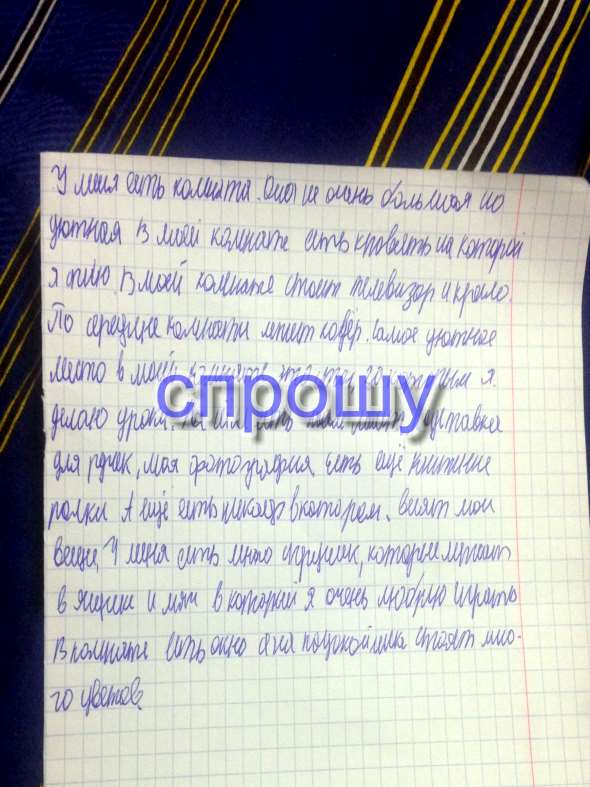 У меня есть комната. Она не очень большая но
уютная В моей комнате есть кровать на которой
я сплю. В моей комнате стоит телевизор и кресло.
По середине комнаты лежит ковёр. Самое уютное
место в моей я
спрошу
делаю уроки.
для ручек, моя фотография есть ещё книжные
полки А ещё есть шкаф в котором. висят мои
вещи, У меня есть много игрушек, которые лежат
в ящике и мяч в который я очень люблю играть
В комнате есть окно а на стоят мно-
го цветов.